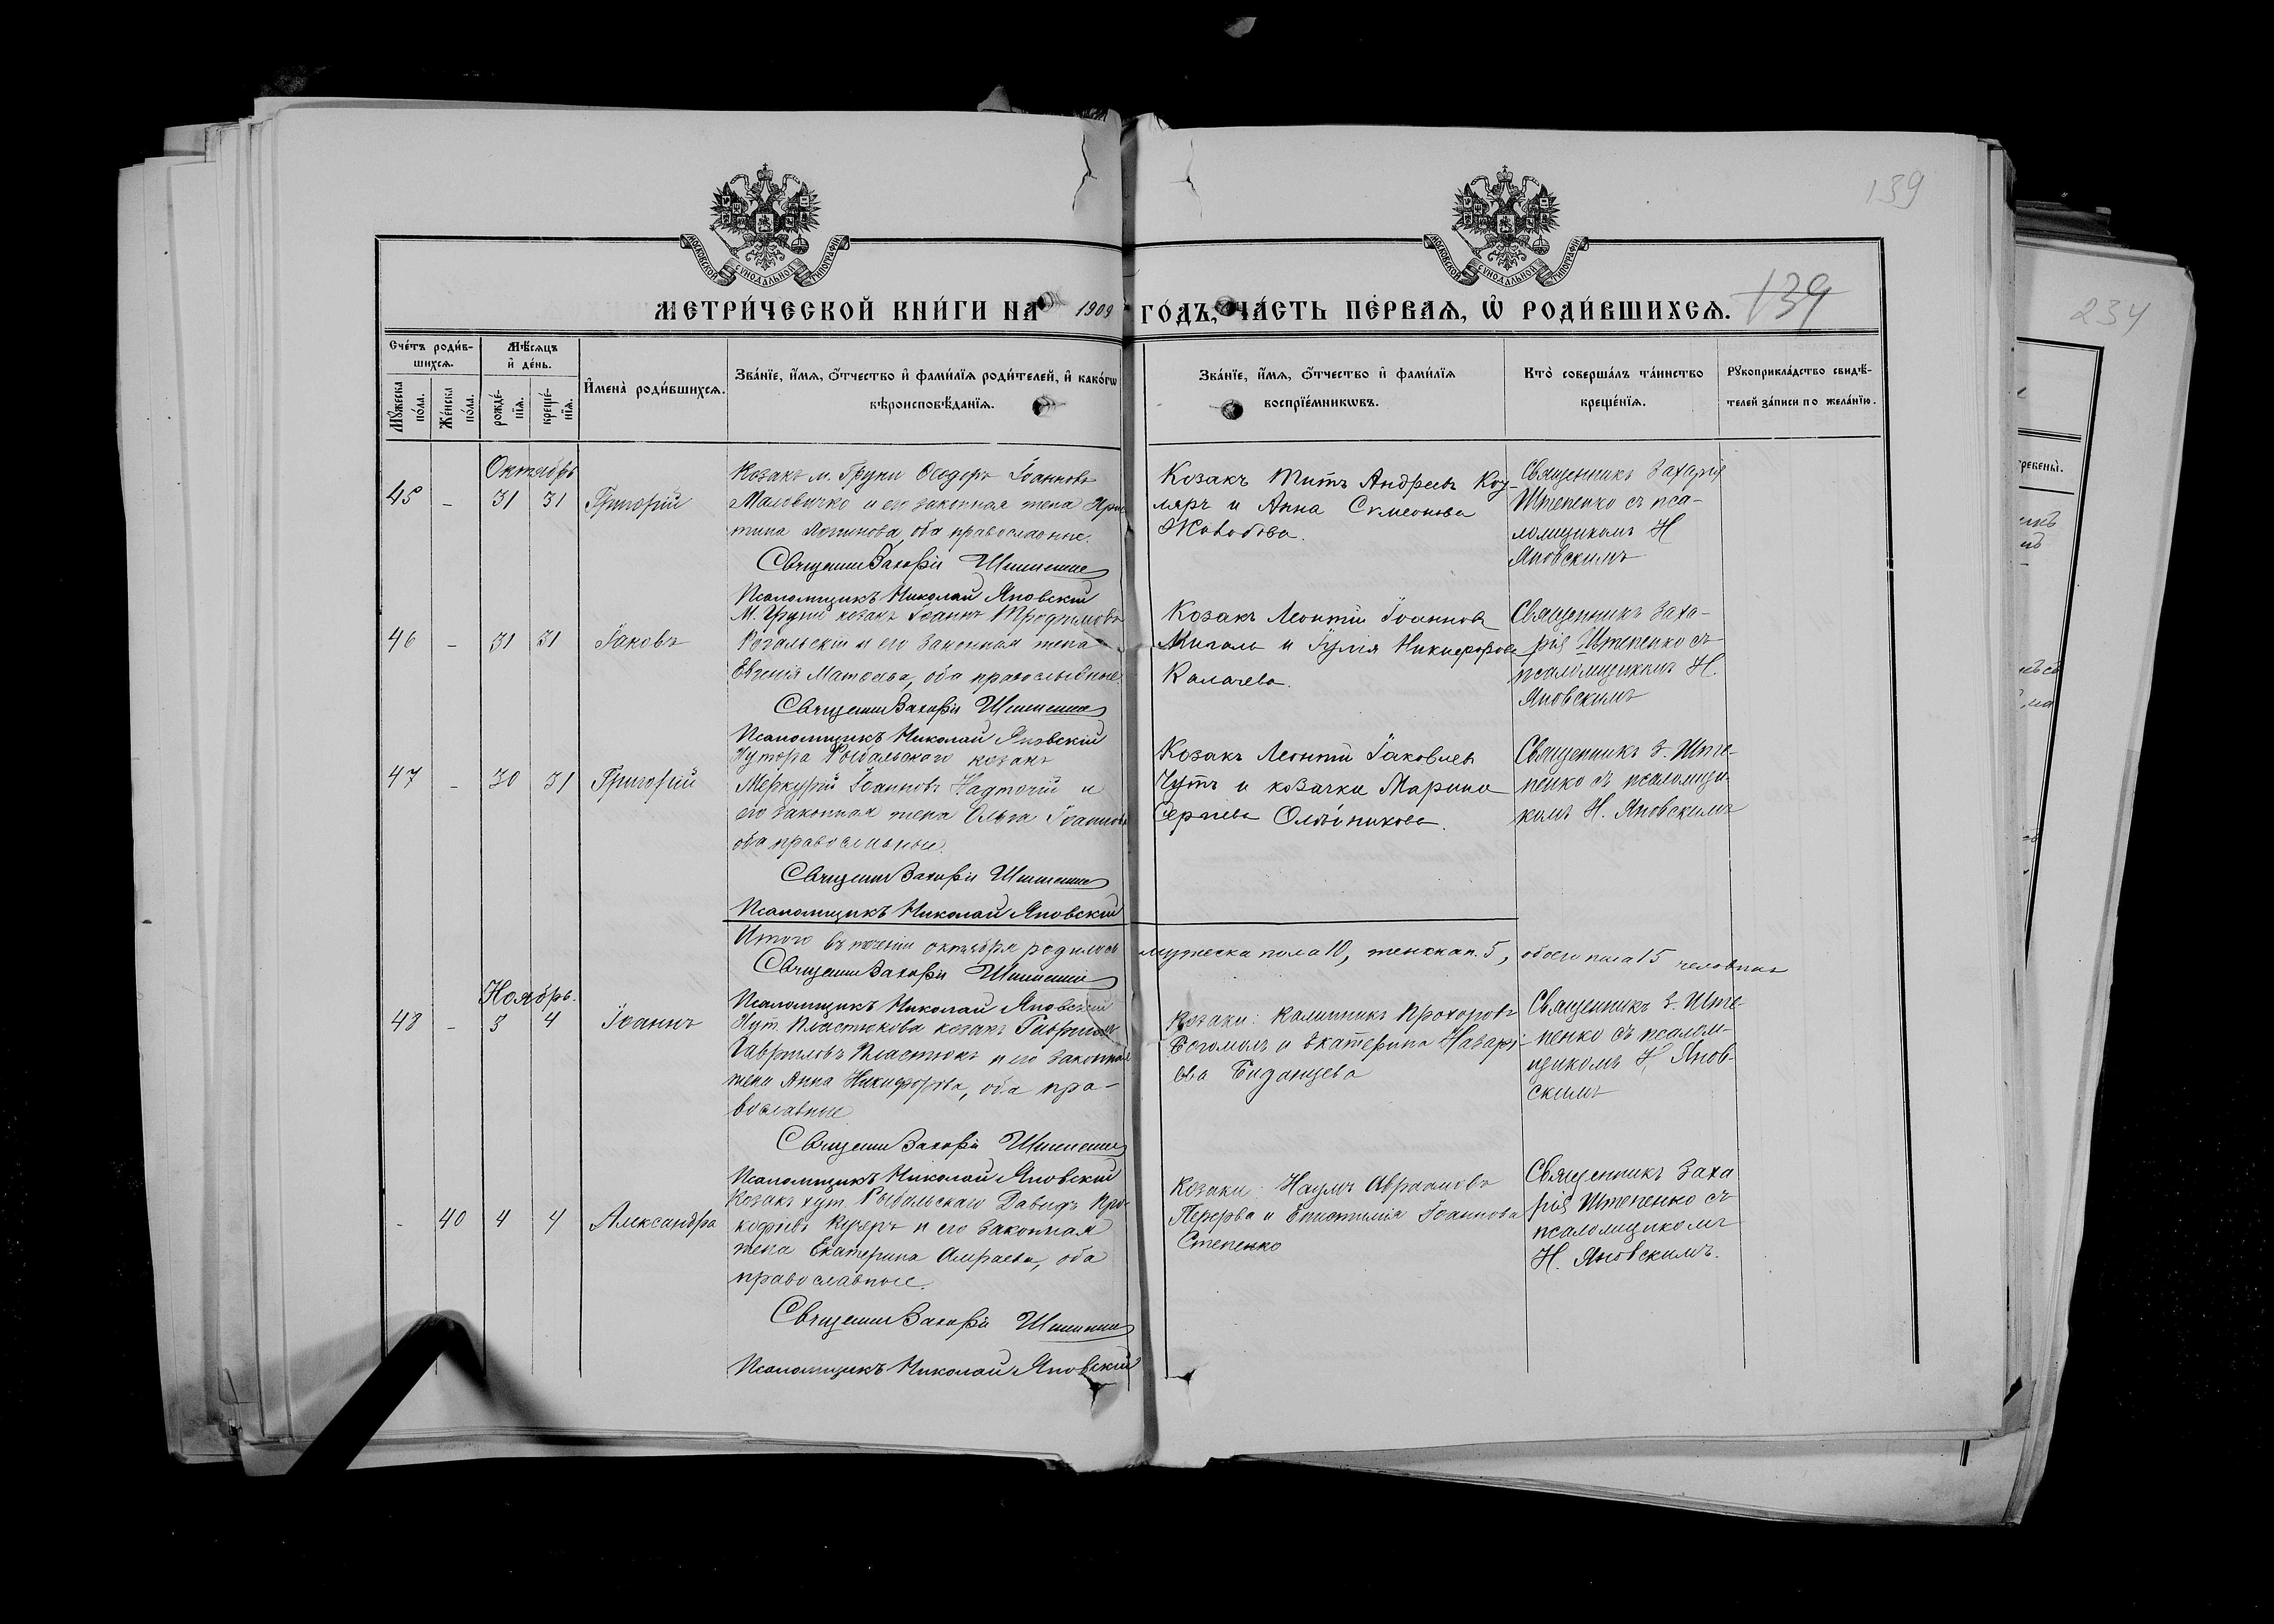 139
МОСКОВСКОЙ СѴНОДАЛЬНОЙ ТИПОГРАФІИ
МОСКОВСКОЙ СѴНОДАЛЬНОЙ ТИПОГРАФІИ
МЕТРИ́ЧЕСКОЙ КНИ́ГИ НА 1909 ГО́ДЪ, ЧА́СТЬ ПЕ́РВАѦ, Ѡ РОДИ́ВШИХСѦ. 139
234
Сче́тъ роди́в-
шихсѧ.
Мꙋ́жеска по́ла.
Же́нска по́ла.
Мѣ́сѧцъ
и҆ де́нь.
рожде́-
нїѧ.
креще́-
нїѧ.
И҆мена̀ роди́вшихсѧ.
Зва́нїе, и҆́мѧ, ѻ҆́тчество и҆ фами́лїѧ роди́телей, и҆ како́гѡ
вѣроисповѣ́данїѧ.
Зва́нїе, и҆́мѧ, ѻ҆́тчество и҆ фами́лїѧ
воспрїе́мникѡвъ.
Кто̀ соверша́лъ та́инство
креще́нїѧ.
Рꙋкоприкла́дство свидѣ́-
телей за́писи по жела́нїю.
Октябрь
45 - 31 31 Григорій
Козакъ м. Груни Ѳеодоръ Іоанновъ
и его законная жена
оба православные.
Священ Захарій Штепенко
Псаломщикъ Николай Яновскій
Козакъ Титъ Андреевъ
ляръ и Анна Симеонова
Священникъ Захарія
Штепенко съ пса-
ломщикомъ Н
Яновскимъ
46 - 31 31 Іаковъ
М. Груни козакъ Іоаннъ Трофимовъ
Рогальскій и его законная жена
Евгенія Матѳеева, оба православные.
Священ Захарій Штепенко
Псаломщикъ Николай Яновскій
Козакъ Леонтій Іоанновъ
и Іулія Никифорова
Калачева.
Священникъ Заха-
рія Штепенко съ
псаломщикомъ Н.
Яновскимъ
47 - 30 31 Григорій
Хутора Рыбальского козакъ
Меркурій Іоанновъ Надточій и
его законная жена Ольга Іоаннова
оба православные.
Священ Захарій Штепенко
Псаломщикъ Николай Яновскій
Козакъ Леонтій Іаковлевъ
Чутъ и козачка Марина
Сергіева Олейникова.
Священникъ З. Ште-
пенко съ псаломщи-
комъ Н. Яновскимъ
Итого въ теченіи октября родилось мужеска пола 10, женска п. 5, обоего пола 15 человѣкъ
Священ Захарій Штепенко
Псаломщикъ Николай Яновскій
Ноябрь.
48 - 3 4 Іоаннъ
Хут. Пластюкова козакъ Гавріилъ
Гавриловъ Пластюкъ и его законная
жена Анна Никифорова, оба пра-
вославные
Священ Захарій Штепенко
Псаломщикъ Николай Яновскій
Козаки: Калинникъ Прохоровъ
Богомолъ и Екатерина Назарі-
ева
Священникъ З. Ште-
пенко съ псалом-
щикомъ Н. Янов-
скимъ
- 40 4 4 Александра
Козакъ хут. Рыбальскаго Давидъ Про-
кофіевъ Кучеръ и его законная
жена Екатерина оба
православные.
Священ Захарій Штепенко
Псаломщикъ Николай Яновскій
Козаки: Наумъ Авраамовъ
Перерва и Епистимія Іоаннова
Степенко
Священникъ Заха
рія Штепенко съ
псаломщикомъ
Н. Яновскимъ.